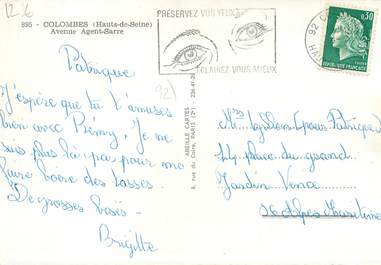 12-6
895 - COLOMBES (Hauts-de-Seine)
Avenue Agent-Sarre
Patrique
J'espère que tu t'amuses
bien avec Rémy, Je ne
suis plus là pour me
faire boire des tasses.
De grosses bises.
Brigitte
92
PRÉSERVEZ VOS YEUX
ÉCLAIREZ VOUS MIEUX
0,30
92
ABEILLE CARTES
8, rue du Caire, PARIS (2e)
(pour Patrique)
44 place du grand
Jardin Vence
06 Alpes Maritimes